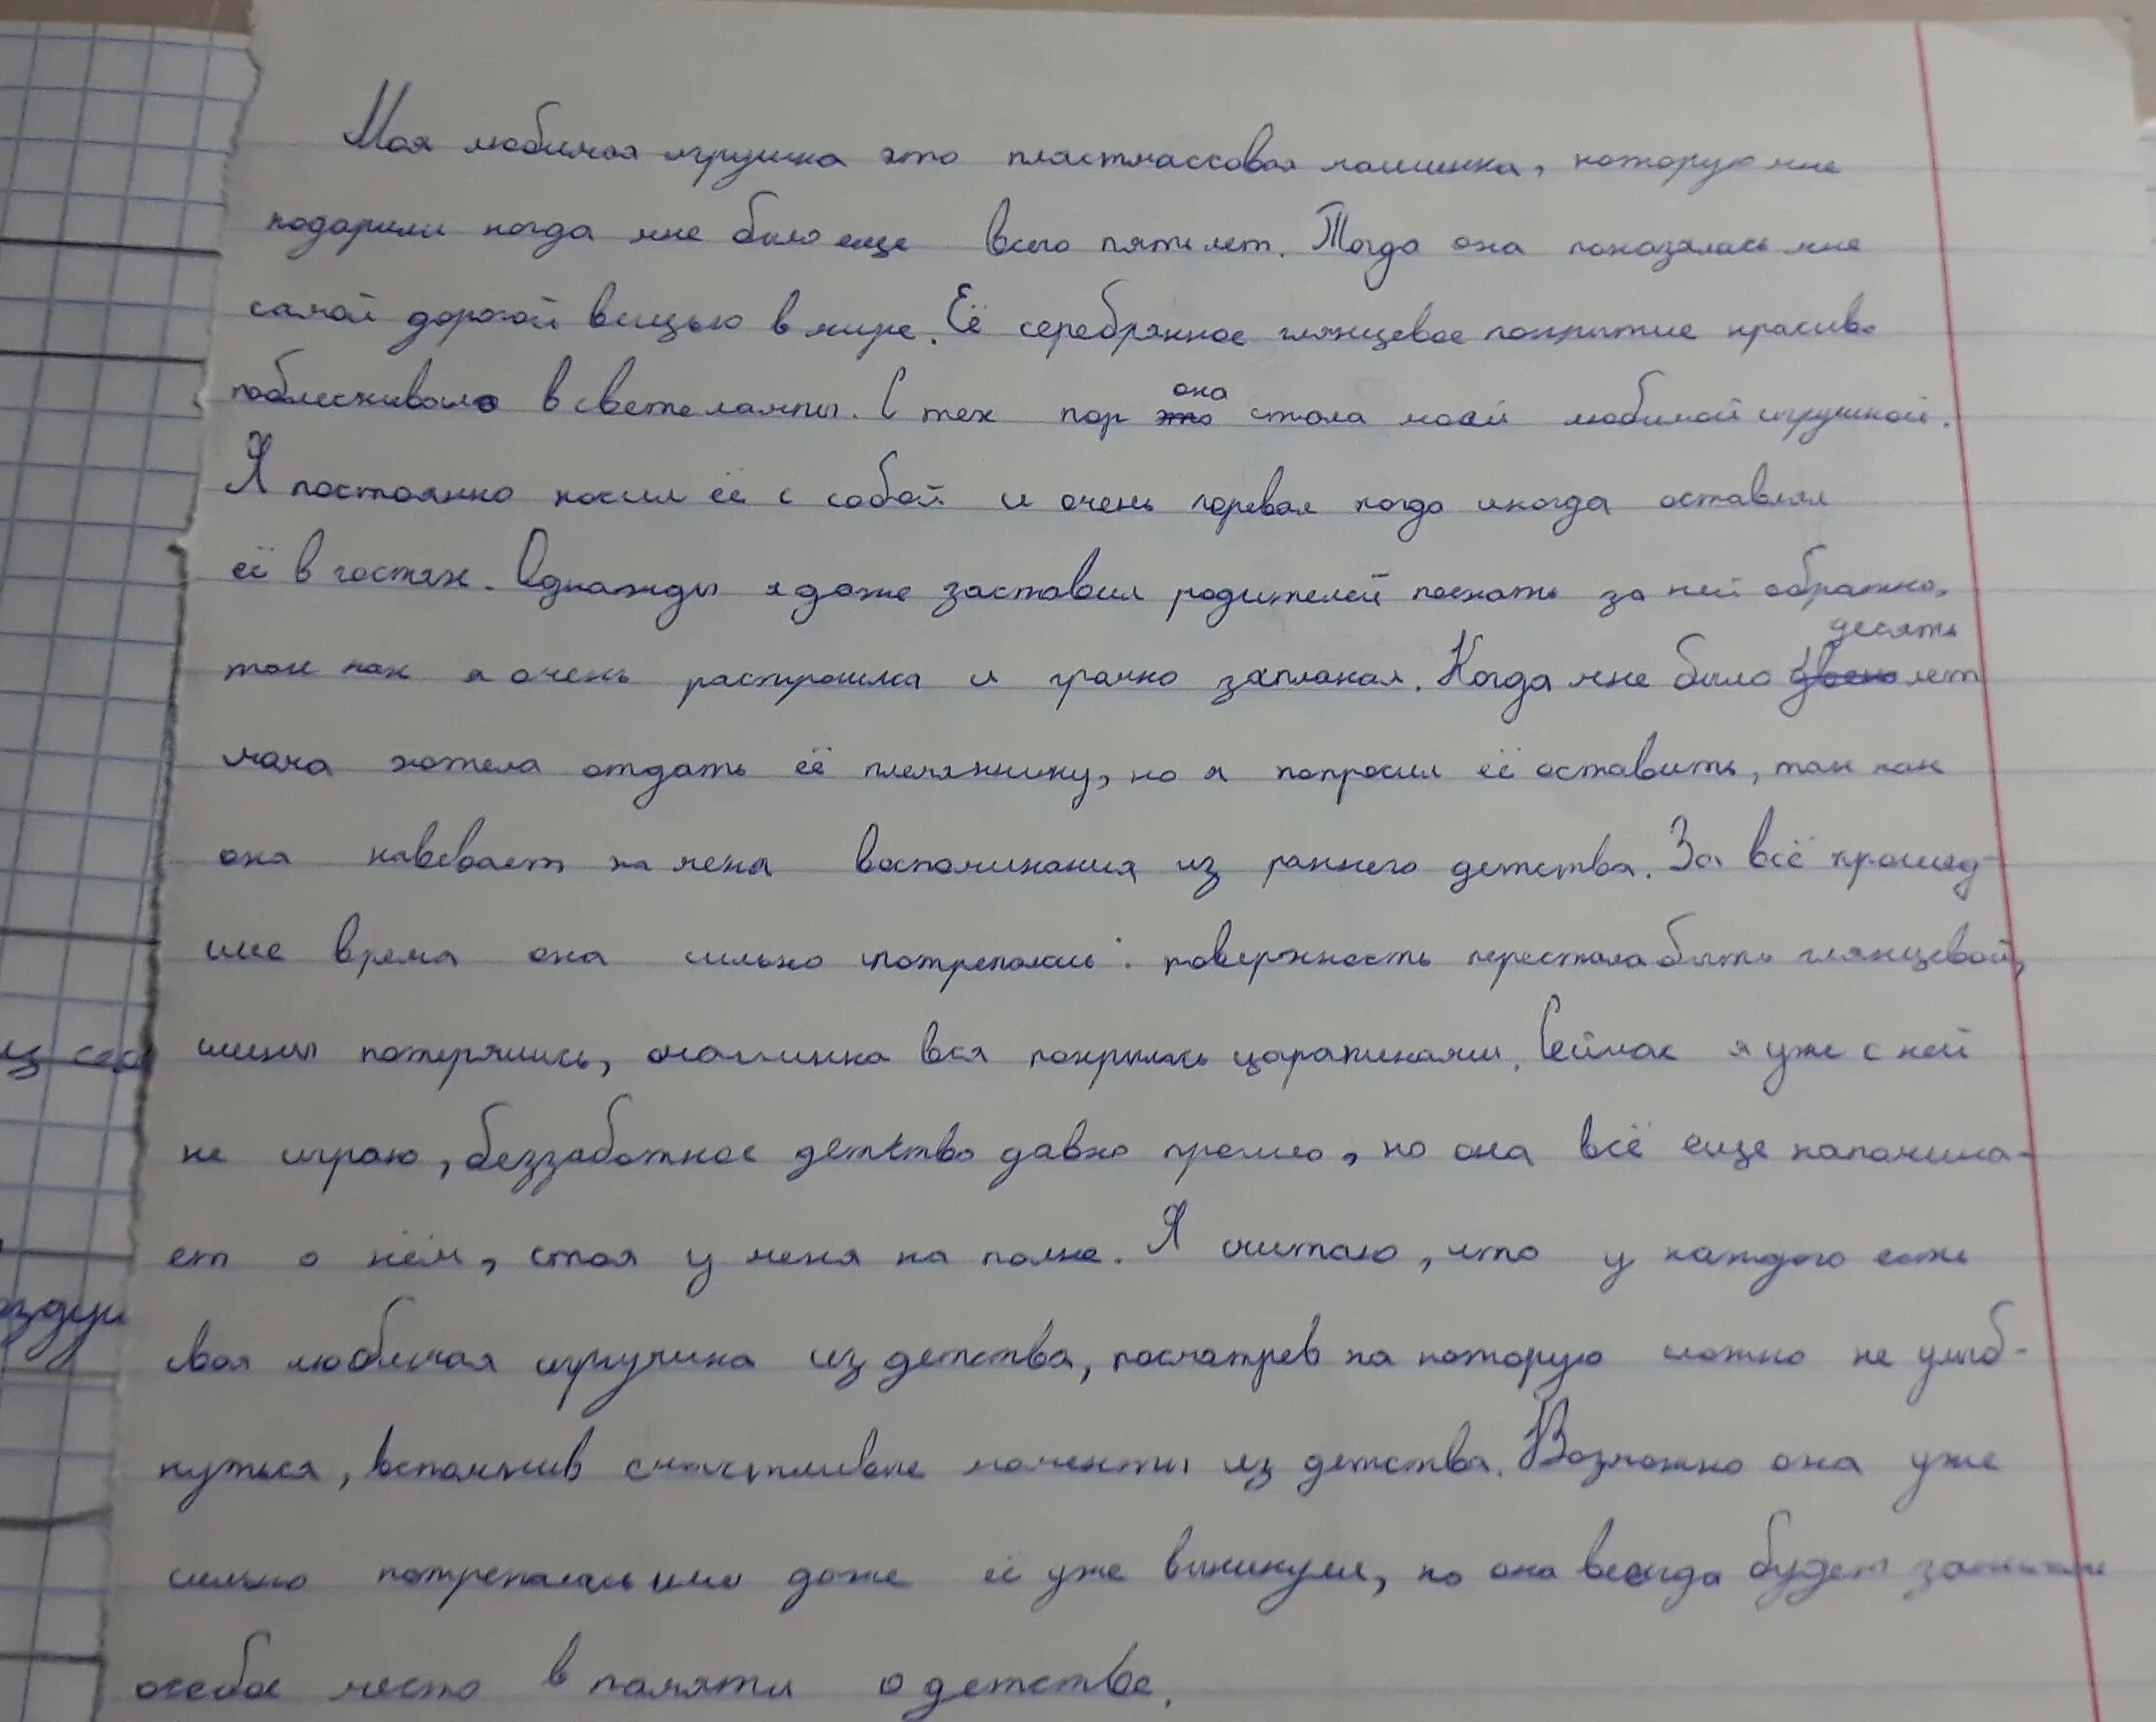 Моя любимая игрушка это пластмассовая машинка, которую мне
подарили когда мне было еще всего пять лет. Тогда она показалась мне
самой дорогой вещью в мире. Её серебрянное глянцевое покрытие красиво
поблескивало в свете лампы. С тех пор это она стала моей любимой игрушкой.
Я постоянно носил её с собой и очень горевал когда иногда оставлял
её в гостях. Однажды я даже заставил родителей поехать за ней обратно,
так как я очень расстроился и громко заплакал. Когда мне было десять лет
мама хотела отдать её племяннику, но я попросил её оставить, так как
она навевает на меня воспоминания из раннего детства. За всё прошед-
шее время она сильно потрепалась: поверхность перестала быть глянцевой,
из сос
шины потерялись, машинка вся покрылась царапинами. Сейчас я уже с ней
не играю, беззаботное детство давно прошло, но она всё еще напомина-
ет о нём, стоя у меня на полке. Я считаю, что у каждого есть
своя любимая игрушка из детства, посмотрев на которую можно не улыб-
нуться, вспомнив счастливые моменты из детства. Возможно она уже
сильно потрепалась или даже её уже выкинули, но она всегда будет
особое место в памяти о детстве.